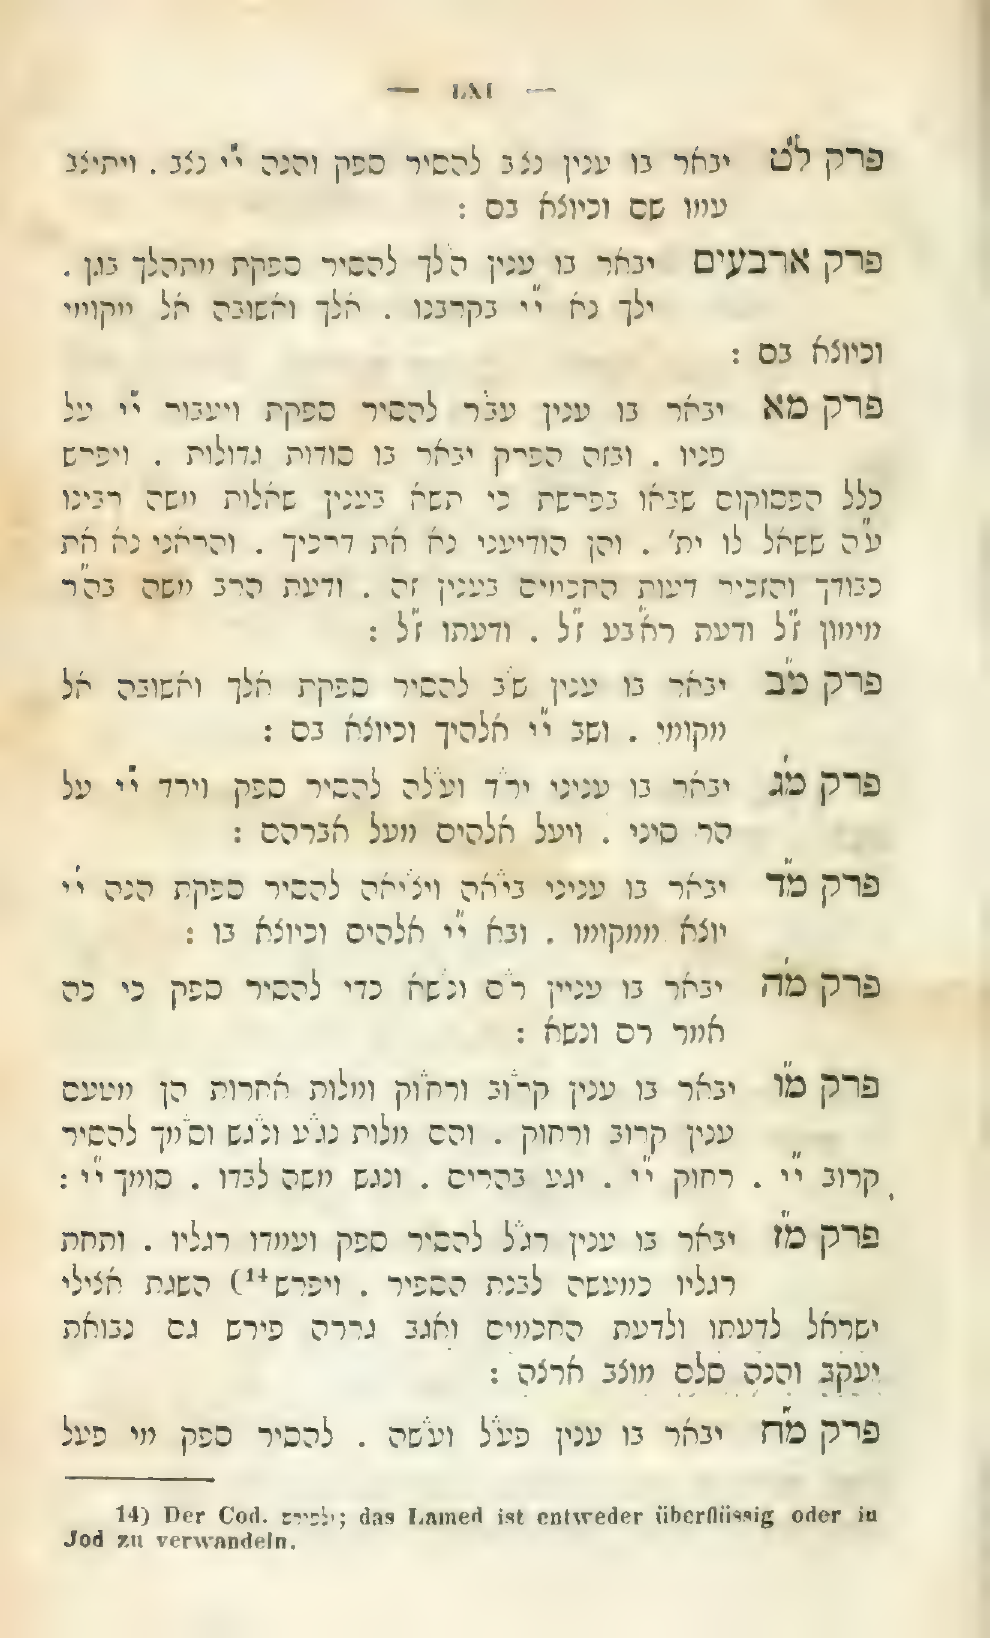 — LXI —
פרק ל"ט יבאר בו ענין נצב להסיר ספק והנה י"י נצב . ויתיצב
עמו שם וכיוצא בם :
פרק ארבעים יבאר בו ענין הלך להסיר ספקת מתהלך בגן .
ילך נא י"י בקרבנו . אלך ואשובה אל מקומי
וכיוצא בם :
פרק מא יבאר בו ענין עבר להסיר ספקת ויעבור י"י על
פניו . ובזה הפרק יבאר בו סודות גדולות . ויפרש
כלל הפסוקים שבאו בפרשת כי תשא בענין שאלות משה רבינו
ע"ה ששאל לו ית' . והן הודיעני נא את דרכיך . והראני נא את
כבודך והזכיר דעות החכמים בענין זה . ודעת הרב משה בה"ר
מימון ז"ל ודעת ראב"ע ז"ל . ודעתו ז"ל :
פרק מ"ב יבאר בו ענין שב להסיר ספקת אלך ואשובה אל
מקומי . ושב י"י אלהיך וכיוצא בם :
פרק מ'ג יבאר בו עניני ירד ועלה להסיר ספק וירד י"י על
הר סיני . ויעל אלהים מעל אברהם :
פרק מ"ד יבאר בו עניני ביאה ויציאה להסיר ספקת הנה י"י
יוצא ממקומו . ובא י"י אלהים וכיוצא בו :
פרק מ'ה יבאר בו עניין רם ונשא כדי להסיר ספק כי כה
אמר רם ונשא :
פרק מ"ו יבאר בו ענין קרוב ורחוק ומלות אחרות הן מטעם
ענין קרוב ורחוק . והם מלות נגע ונגש וסמך להסיר
קרוב י"י . רחוק י"י . יגע בהרים . ונגש משה לבדו . סומך י"י :
פרק מ"ז יבאר בו ענין רגל להסיר ספק ועמדו רגליו . ותחת
רגליו כמעשה לבנת הספיר . ויפרש14) השגת אצילי
ישראל לדעתו ולדעת החכמים ואגב גררה פירש גם נבואת
יעקב והנה סלם מוצב ארצה :
פרק מ"ח יבאר בו ענין פעל ועשה . להסיר ספק מי פעל
14) Der Cod. ולפירש; das Lamed ist entweder überflüssig oder in
Jod zu verwandeln.